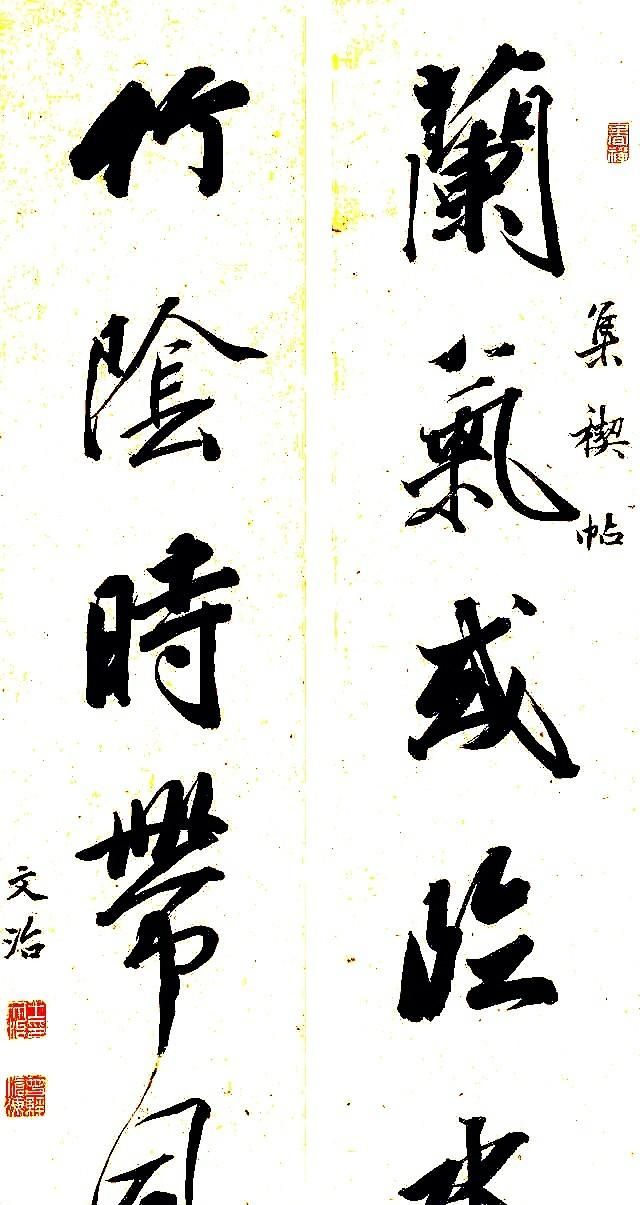 集禊帖
蘭氣或臨
竹陰時帶
文治